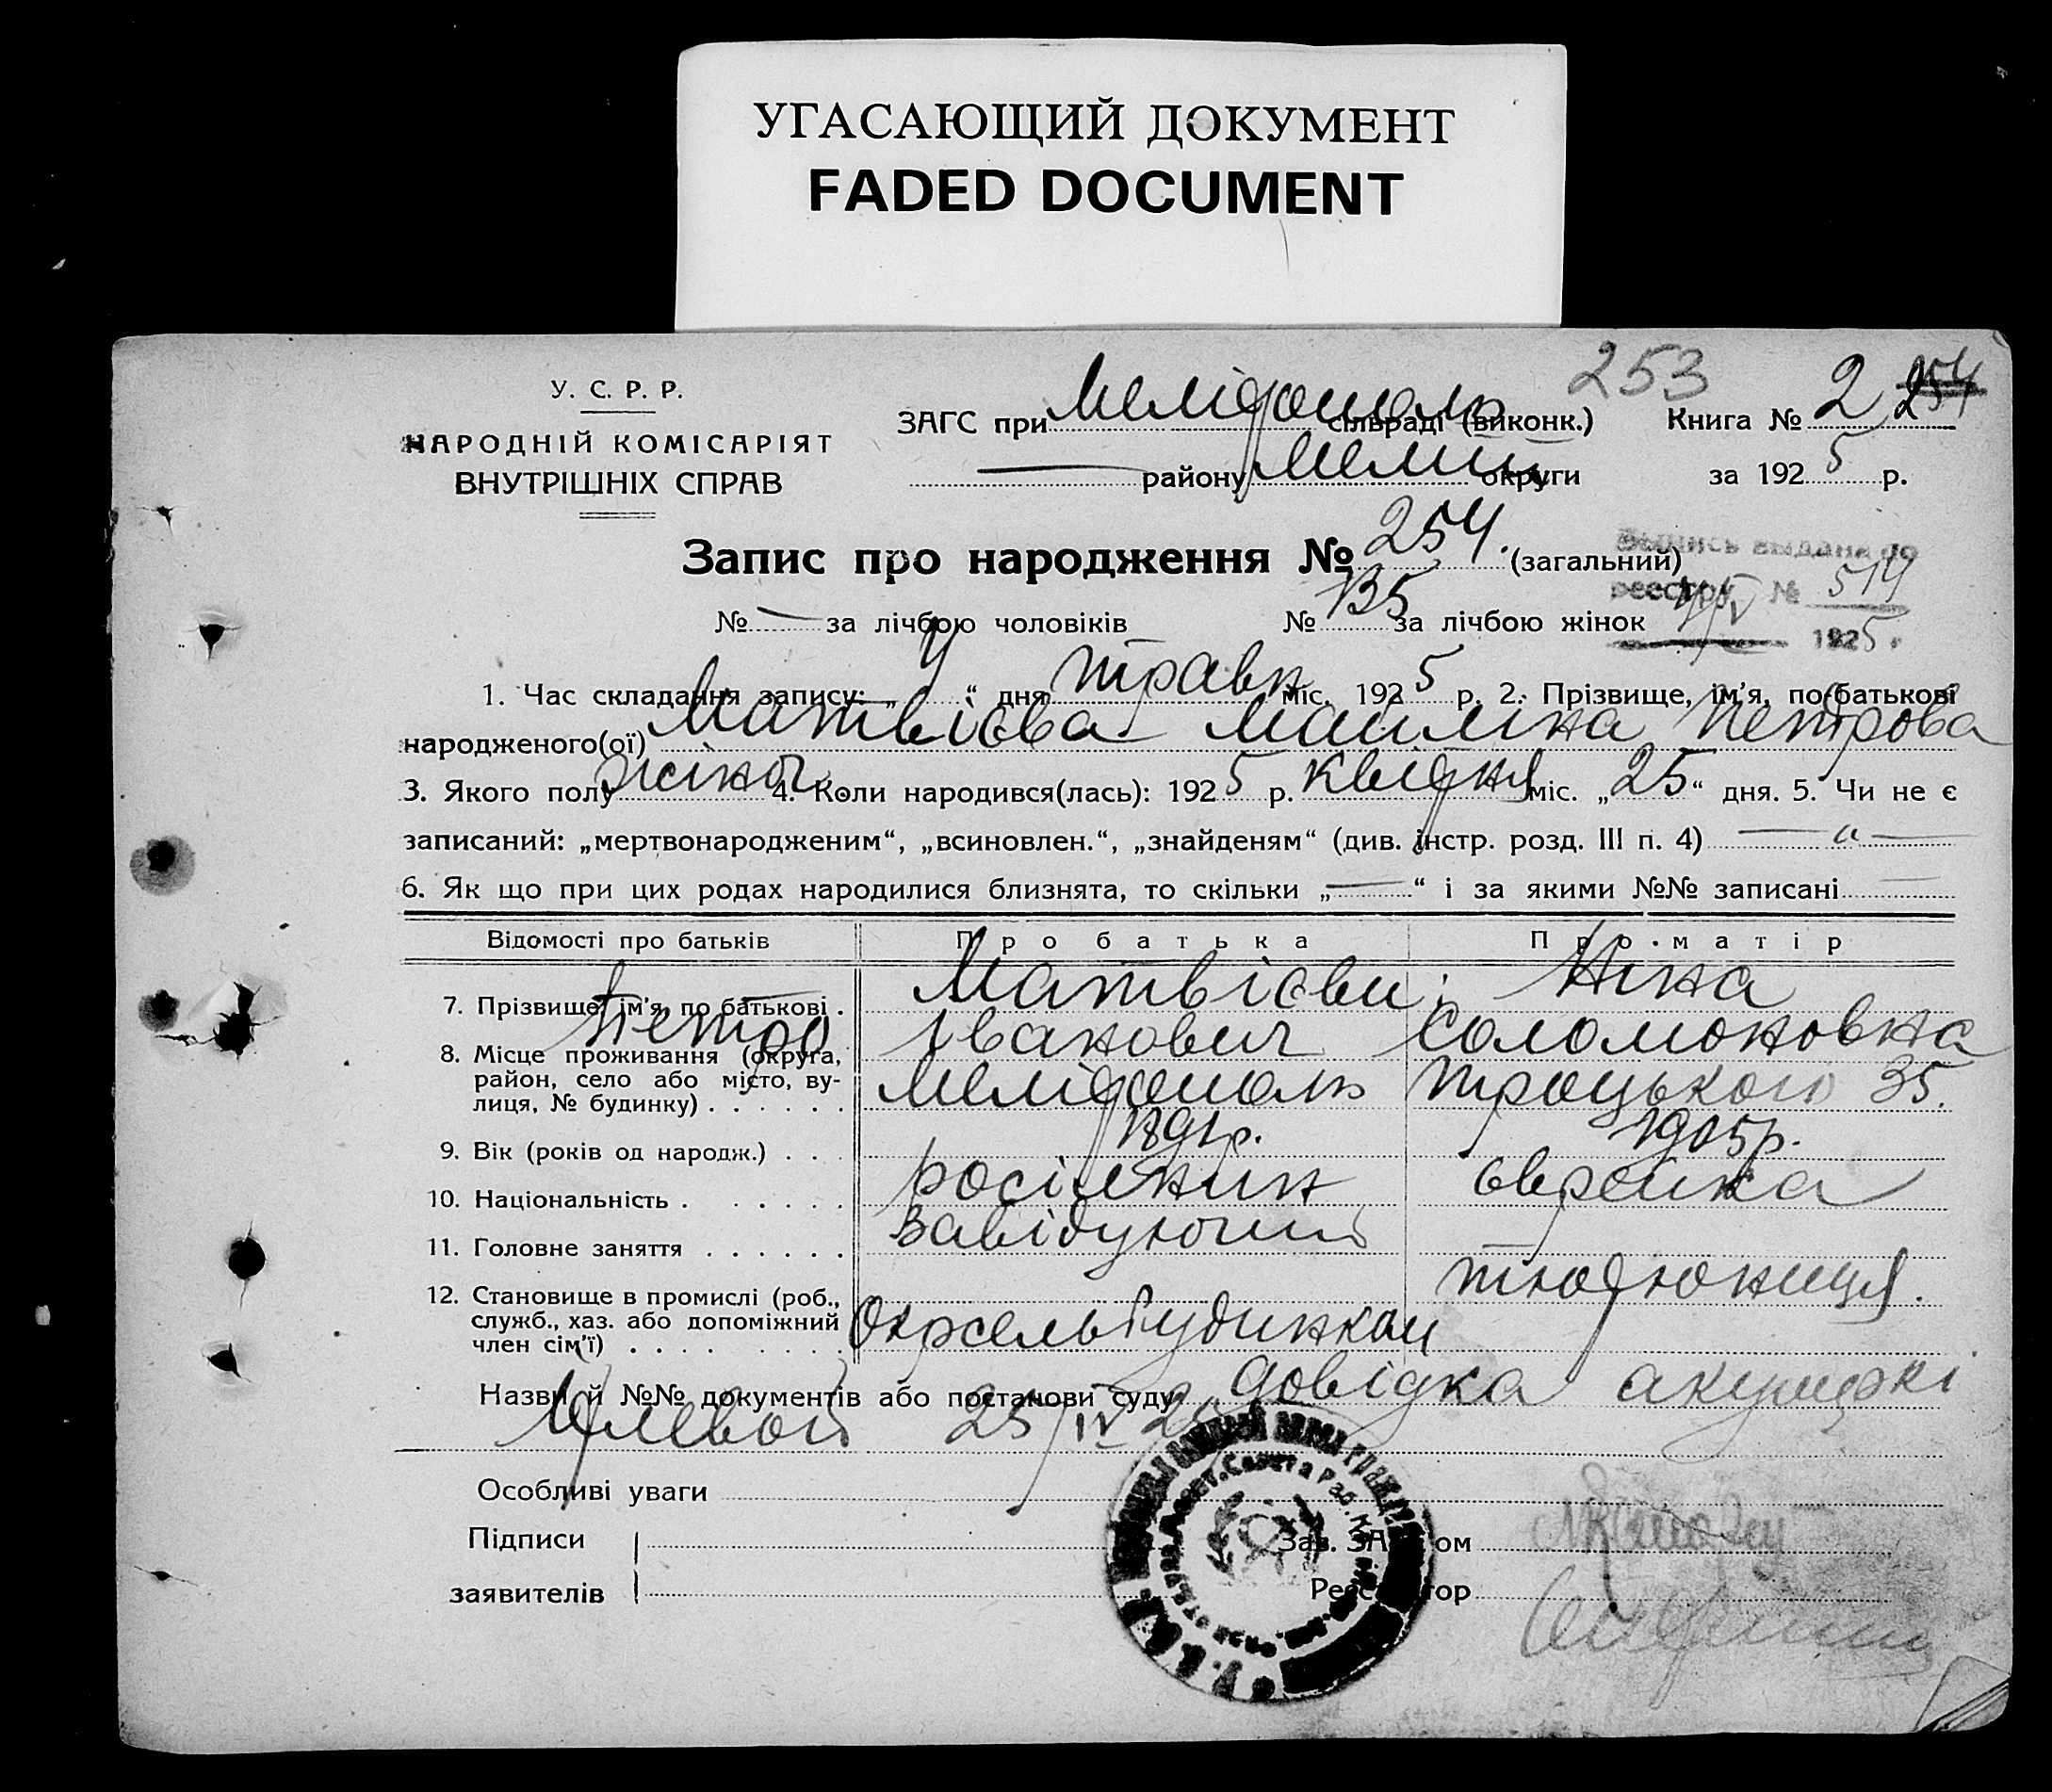 УГАСАЮЩИЙ ДОКУМЕНТ
FADED DOCUMENT
253
У. С. Р. Р.
НАРОДНІЙ КОМІСАРІЯТ
ВНУТРІШНІХ СПРАВ
ЗАГС при Мелідополь сільраді (виконк.) Книга № 2 254
району Меліт округи за 1925 р.
Запис про народження № 254. (загальний)
Выпись выдана по
реестру № 514
1925 г
№ — за лічбою чоловіків № 135 за лічбою жінок
1. Час складання запису: „4“ дня травн міс. 1925 р. 2. Прізвище, ім'я, по-батькові
народженого(ої) Матвієва Петрова
3. Якого полу жіноч. 4. Коли народився(лась): 1925 р. квідня міс. „25“ дня. 5. Чи не є
записаний: „мертвонародженим“, „всиновлен.“, „знайденям“ (див. інстр. розд. III п. 4) — „ —
6. Як що при цих родах народилися близнята, то скільки „—“ і за якими №№ записані —
Відомості про батьків Про батька Про матір
7. Прізвище, ім'я, по батькові . Матвієви Ніна
Петро Іванович Соломоновна
8. Місце проживання (округа, район, село або місто, вулиця, № будинку) . . . . . . Мелідополь Троцького 35.
9. Вік (років од народж.) . . . 1891р. 1905р.
10. Національність . . . . . . росіянин єврейка
11. Головне заняття . . . . . . Завідуючий
12. Становище в промислі (роб., служб., хаз. або допоміжний член сім'ї) . . . . . . . . Окрсельбудинком
Назви й №№ документів або постанови суду: довідка акушеркі
25/IV 25
Особливі уваги
Підписи
заявителів
Зав. ЗАГСом
Реєстратор